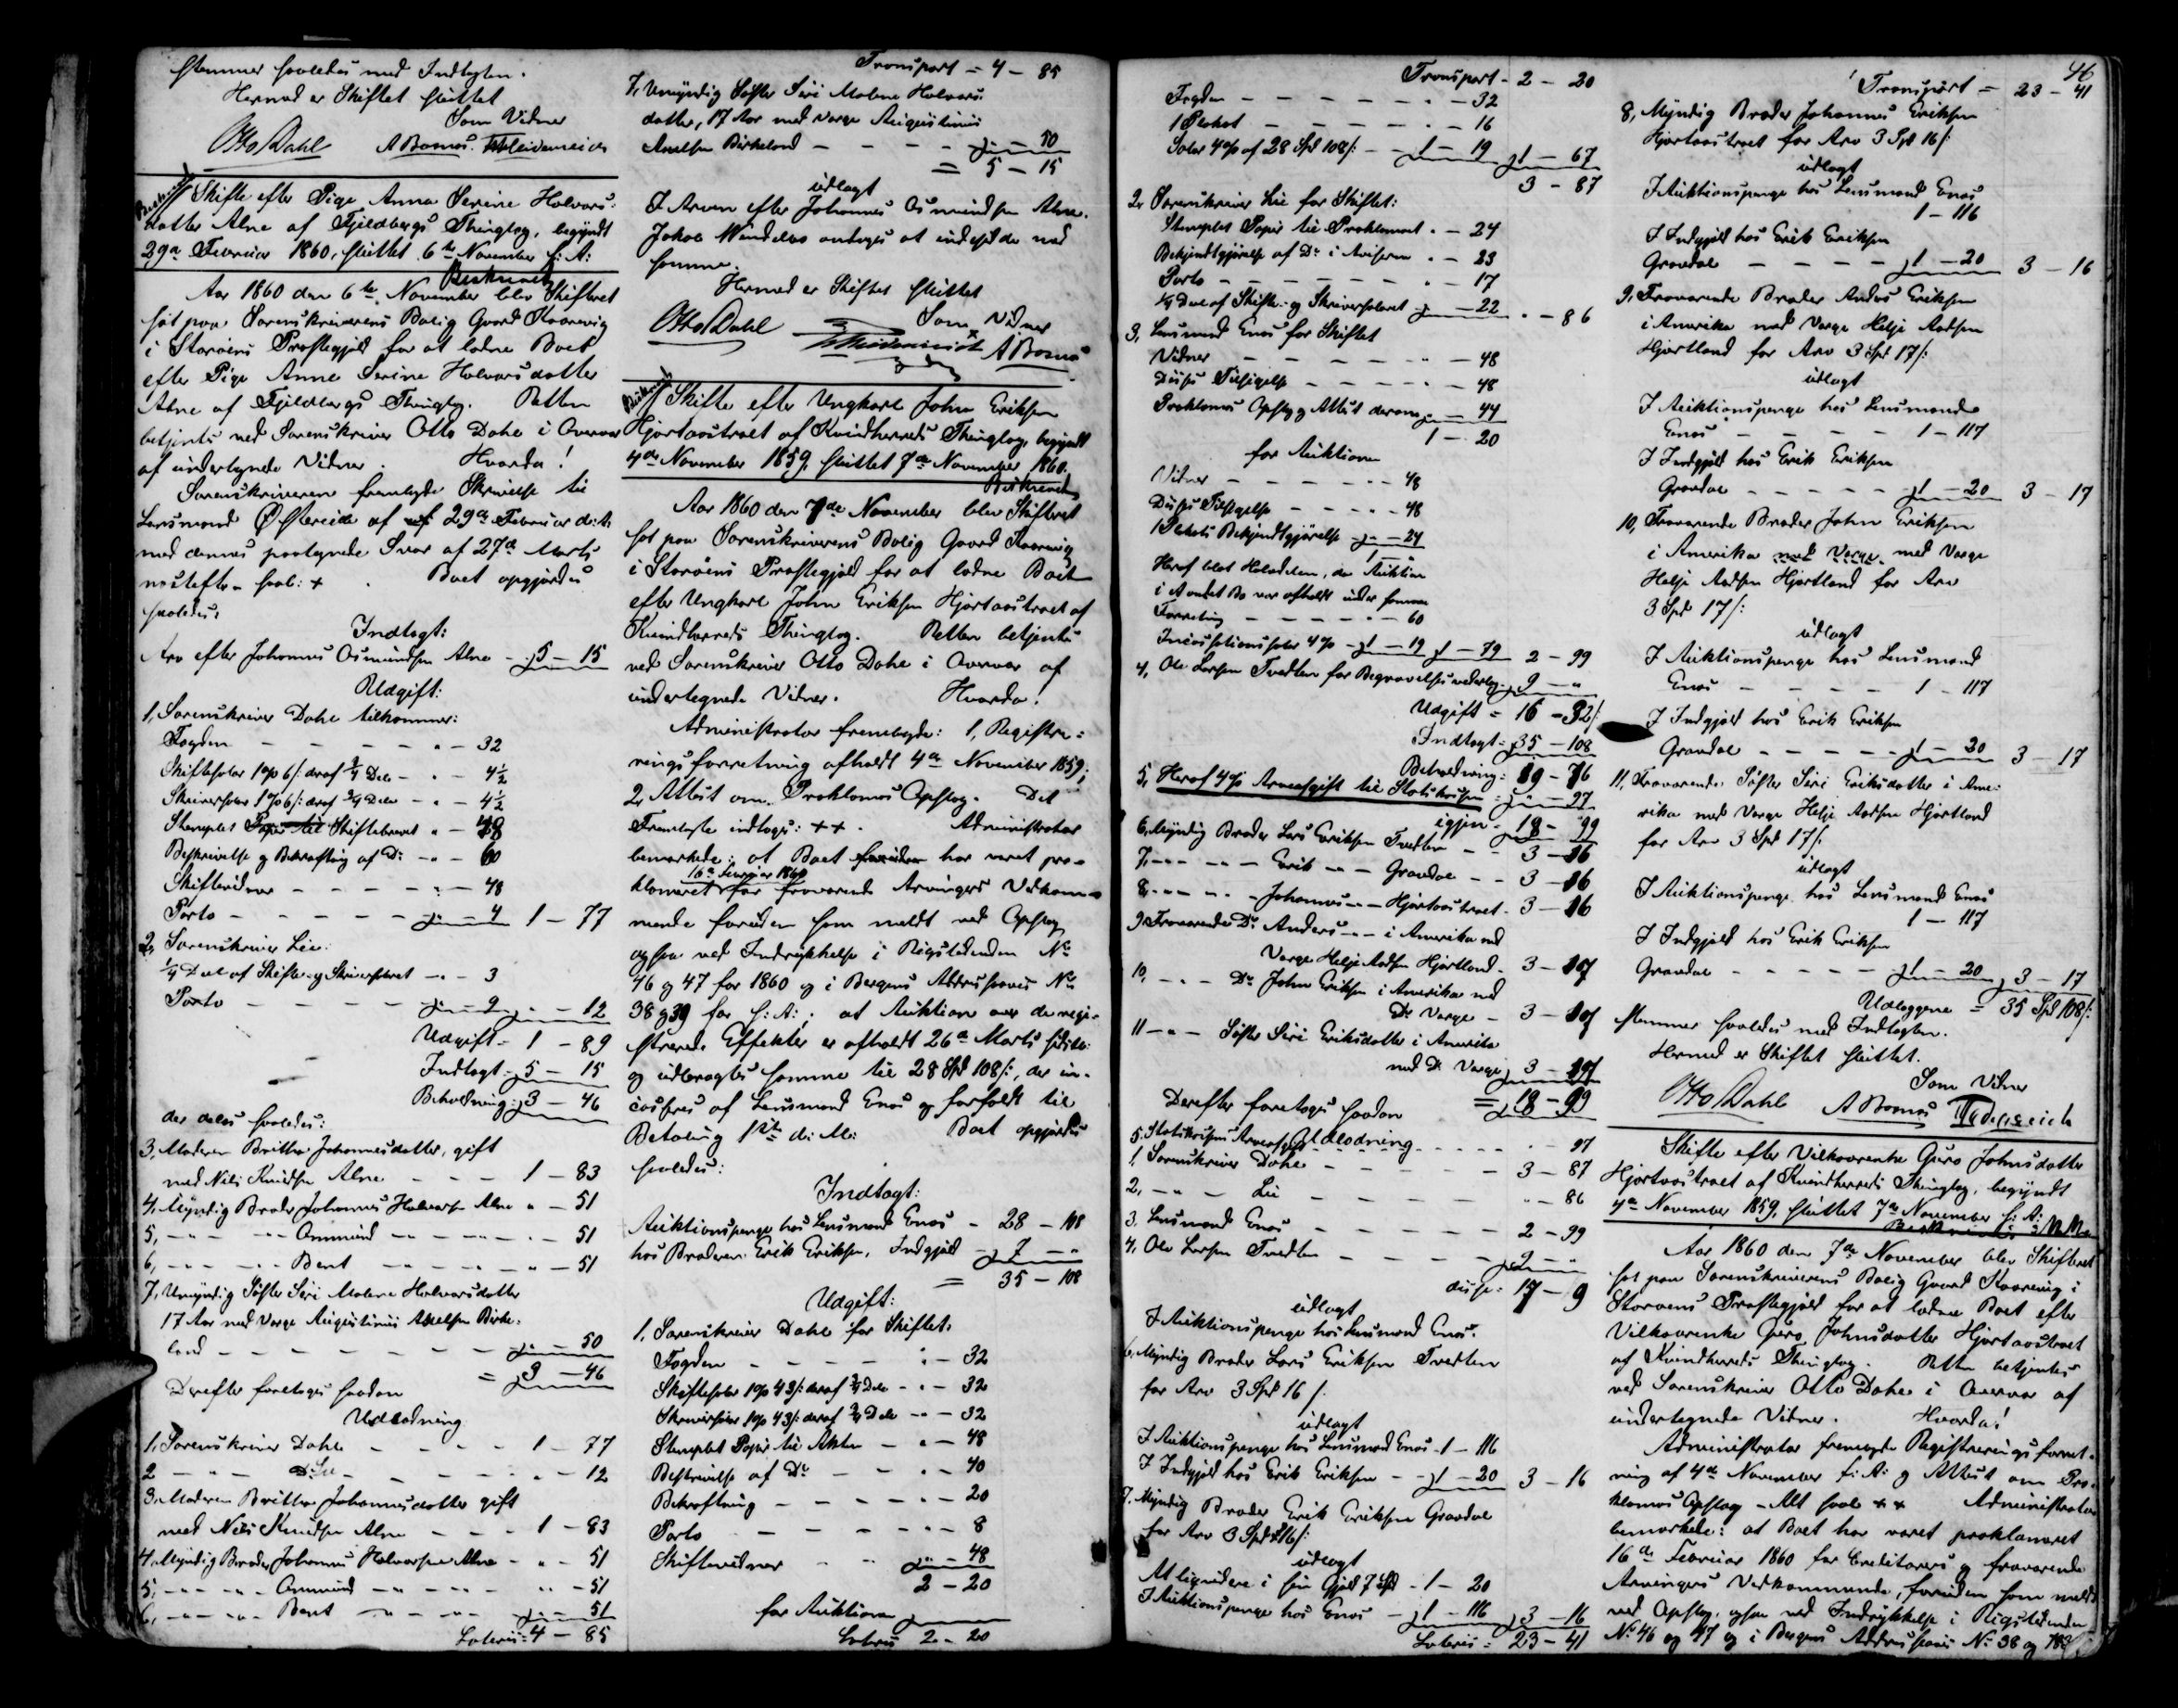 stemmer saaledes med Indtægten.
Hermed er Skiftet sluttet
Som Vidner
Otto Dahl A Bomøs.
Skifte efter Pige Anna Serine Halvors-
datter Alne af Fjeldbergs Thinglag, begyndt
29de Februar 1860, sluttet 6te November s: A:
Beskrevet
Aar 1860 den 6te November blev Skifteret
sat paa Sorenskriverens Bolig Gaard
i Storøens Præstegjeld for at slutte Boet
efter Pige Anne Serine Halvorsdatter
Alne af Fjeldbergs Thinglag. Retten
betjentes ved Sorenskriver Otto Dahl i Overvær
af undertegnede Vidner. Hvorda!
Sorenskriveren fremlagde Skrivelse til
Lensmand Østereide af 29de Februar d: A:
med dennes paategnede Svar af 27de Marts
næstefter saal: + . Boet opgjordes
saaledes:
Indtægt:
Arv efter Johannes Osmundsen Alne - 5 - 15
Udgift:
1, Sorenskriver Dahl tilkommer:
Fogden - - - - " - 32
Skiftesalær 1 % 6 s: deraf 3/4 Dele - " - 4 1/2
Skriversalær 1 % 6 s: deraf 3/4 Dele - " - 4 1/2
Stemplet Papir til Skiftebrevet " - 48
Beskrivelse og Bekræftning af Do - " - 60
Skiftevidner - - - - " - 48
Porto - - - - " - 4 1 - 77
2, Sorenskriver Lie:
1/4 Deel af Skifte- og Skriversalæret - " - 3
Porto - - - - " - 9 " - 12
Udgift = 1 - 89
Indtægt = 5 - 15
Beholdning: 3 - 46
der deles saaledes:
3, Moderen Britha Johannesdatter, gift
med Nils Knudsen Alne - - - 1 - 83
4, Myndig Broder Johannes Halvorsen Alne " - 51
5, - " - " - Ommund - " - " - " - 51
6, - " - " - Bent - " - " - " - 51
7, Umyndig Søster Siri Malene Halvorsdatter
17 Aar med Værge Augustinus Axelsen Birke-
land - - - - - " - 50
= 3 - 46
Derefter foretoges saadan
Udlodning
1, Sorenskriver Dahl - - - - 1 - 77
2 - " - Lie - - - - " - 12
3, Moderen Britha Johannesdatter gift
med Nils Knudsen Alne - - - 1 - 83
4, Myndig Broder Johannes Halvorsen Alne - " - 51
5, - " - " - Ommund - " - " - " - 51
6, - " - " - Bent - " - " - " - 51
Lateris: 4 - 85
Transport = 4 - 85
7, Umyndig Søster Siri Malene Halvors-
datter, 17 Aar med Værge Augustinus
Axelsen Birkeland - - - - " - 50
= 5 - 15
udlagt
I Arven efter Johannes Osmundsen Alne.
Hermed er Skiftet sluttet
Som Vidner
Otto Dahl A Bomøs
Beskrevet
Skifte efter Ungkarl John Eriksen
Hjortaastræet af Kvindherreds Thinglag, begyndt
4de November 1859, sluttet 7de November 1860.
Beskrevet
Aar 1860 den 7de November blev Skifteret
sat paa Sorenskriverens Bolig Gaard
i Storøens Præstegjeld for at slutte Boet
efter Ungkarl John Eriksen Hjortaastræet af
Kvindherreds Thinglag. Retten betjentes
ved Sorenskriver Otto Dahl i Overvær af
undertegnede Vidner. Hvorda!
Administrator fremlagde: 1, Registre-
ringsforretning afholdt 4de November 1859;
2, Attest om Proklamas Opslag. Det
Fremlagte indtages: ++. Administrator
bemærkede: at Boet har været pro-
16de Februar 1860
klameret for fraværende Arvingers Vedkom-
mende foruden som meldt ved Opslag
ogsaa ved Indrykkelse i Rigstidenden No
46 og 47 for 1860 og i Bergens Adresseavis No
38 og 39 for s: A:; at Auktion over de regi-
strerede Effekter er afholdt 26de Marts
og udbragtes samme til 28 Spd 108 s:, der in-
casseres af Lensmand Enæs og forfaldt til
Betaling d: M: Boet opgjordes
saaledes:
Indtægt:
Auktionspenge hos Lensmand Enæs - 28 - 108
hos Broderen Erik Eriksen, Indgjeld - 7 - "
= 35 - 108
Udgift:
1, Sorenskriver Dahl for Skiftet:
Fogden - - - - " - 32
Skiftesalær 1 % 43 s: deraf 3/4 Dele - " - 32
Skriversalær 1 % 43 s: deraf 3/4 Dele - " - 32
Stemplet Papir til Akten - " - 48
Beskrivelse af Do - - " - 40
Bekræftning - - - - " - 20
Porto - - - - " - 8
Skiftevidner - - " - 48
2 - 20
for Auktionen
Lateris 2 - 20
Transport - 2 - 20
Fogden - - - - " - 32
1 Plakat - - - - " - 16
Salær 4 % af 28 Spd 108 s: - 1 - 19 1 - 67
3 - 87
2, Sorenskriver Lie for Skiftet:
Stemplet Papir til Proklamaet " - 24
Bekjendtgjørelse af Do i Aviserne " - 23
Porto - - - - " - 17
1/4 Deel af Skifte- og Skriversalæret " - 22 " - 86
3, Lensmand Enæs for Skiftet
Vidner - - - - " - 48
Disses Tilsigelse - - - - " - 48
Proklamas Opslag og Attest derom " - 44
1 - 20
for Auktionen
Vidner - - - - " - 48
Disses Tilsigelse - - - " - 48
1 Plakats Bekjendtgjørelse " - 24
1 - "
Heraf blot Halvdelen, da Auktion
i et andet Bo var afholdt under samme
Forretning - - - - " - 60
Incassationssalær 4 % - 1 - 19 1 - 79 2 - 99
4, Ole Larsen Tvedten for Begravelses 9 - "
Udgift = 16 - 32 s:
Indtægt = 35 - 108
Beholdning: 19 - 76
5, Heraf 4 % Arveafgift til Statskassen = " - 97
igjen - 18 - 99
6, Myndig Broder Lars Eriksen Tvedten - - 3 - 16
7, - " - " - Erik - " - Gravdal - - 3 - 16
8, - " - " - Johannes - " - Hjortaastræet - 3 - 16
9, Fraværende Do Anders - " - i Amerika med
Værge Helje Aadsen Hjortland - 3 - 17
10, - " - Do John Eriksen i Amerika med
Do Værge - 3 - 17
11 - " - Søster Siri Eriksdatter i Amerika
med Do Værge 3 - 17
= 18 - 99
Derefter foretoges saadan
Udlodning
5, Statskassens Arveafgift - - - " - 97
1, Sorenskriver Dahl - - - - 3 - 87
2, - " - Lie - - - - " - 86
3, Lensmand Enæs - - - - 2 - 99
4, Ole Larsen Tvedten - - - - 9 - "
disse: 17 - 9
udlagt
I Auktionspenge hos Lensmand Enæs.
6, Myndig Broder Lars Eriksen Tvedten
for Arv 3 Spd 16 s:
udlagt
I Auktionspenge hos Lensmand Enæs 1 - 116
I Indgjeld hos Erik Eriksen - 1 - 20 3 - 16
7, Myndig Broder Erik Eriksen Gravdal
for Arv 3 Spd 16 s:
udlagt
At liqvidere i sin Gjeld 7 Spd - 1 - 20
I Auktionspenge hos Enæs - 1 - 116 3 - 16
Lateris = 23 - 41
46
Transport = 23 - 41
8, Myndig Broder Johannes Eriksen
Hjortaastræet for Arv 3 Spd 16 s:
udlagt
I Auktionspenge hos Lensmand Enæs
1 - 116
I Indgjeld hos Erik Eriksen
Gravdal - - - - 1 - 20 3 - 16
9, Fraværende Broder Anders Eriksen
i Amerika med Værge Helje Aadsen
Hjortland for Arv 3 Spd 17 s:
udlagt
I Auktionspenge hos Lensmand
Enæs - - - - 1 - 117
I Indgjeld hos Erik Eriksen
Gravdal - - - - 1 - 20 3 - 17
10, Fraværende Broder John Eriksen
i Amerika med Værge med Værge
Helje Aadsen Hjortland for Arv
3 Spd 17 s:
udlagt
I Auktionspenge hos Lensmand
Enæs - - - - 1 - 117
I Indgjeld hos Erik Eriksen
Gravdal - - - - 1 - 20 3 - 17
11, Fraværende Søster Siri Eriksdatter i Ame-
rika med Værge Helje Aadsen Hjortland
for Arv 3 Spd 17 s:
udlagt
I Auktionspenge hos Lensmand Enæs
1 - 117
I Indgjeld hos Erik Eriksen
Gravdal - - - - 1 - 20 3 - 17
Udlæggene = 35 Spd 108 s:
stemmer saaledes med Indtægten.
Hermed er Skiftet sluttet.
Som Vidner
Otto Dahl A Bomøs
Skifte efter Vilkaarenke Guro Johnsdatter
Hjortaastræet af Kvindherreds Thinglag, begyndt
4de November 1859, sluttet 7de November s: A:
Aar 1860 den 7de November blev Skifteret
sat paa Sorenskriverens Bolig Gaard i
Storøens Præstegjeld for at slutte Boet efter
Vilkaarenke Guro Johnsdatter Hjortaastræet
af Kvindherreds Thinglag. Retten betjentes
ved Sorenskriver Otto Dahl i Overvær af
undertegnede Vidner. Hvorda!
Administrator fremlagde Registreringsforret-
ning af 4de November f: A: og Attest om Pro-
klamas Opslag - Alt saal ++ Administrator
bemærkede: at Boet har været proklameret
16de Februar 1860 for Creditorers og fraværende
Arvingers Vedkommende, foruden som meldt
ved Opslag, ogsaa ved Indrykkelse i Rigstidenden
No 46 og 47 og i Bergens Adresseavis No 38 og